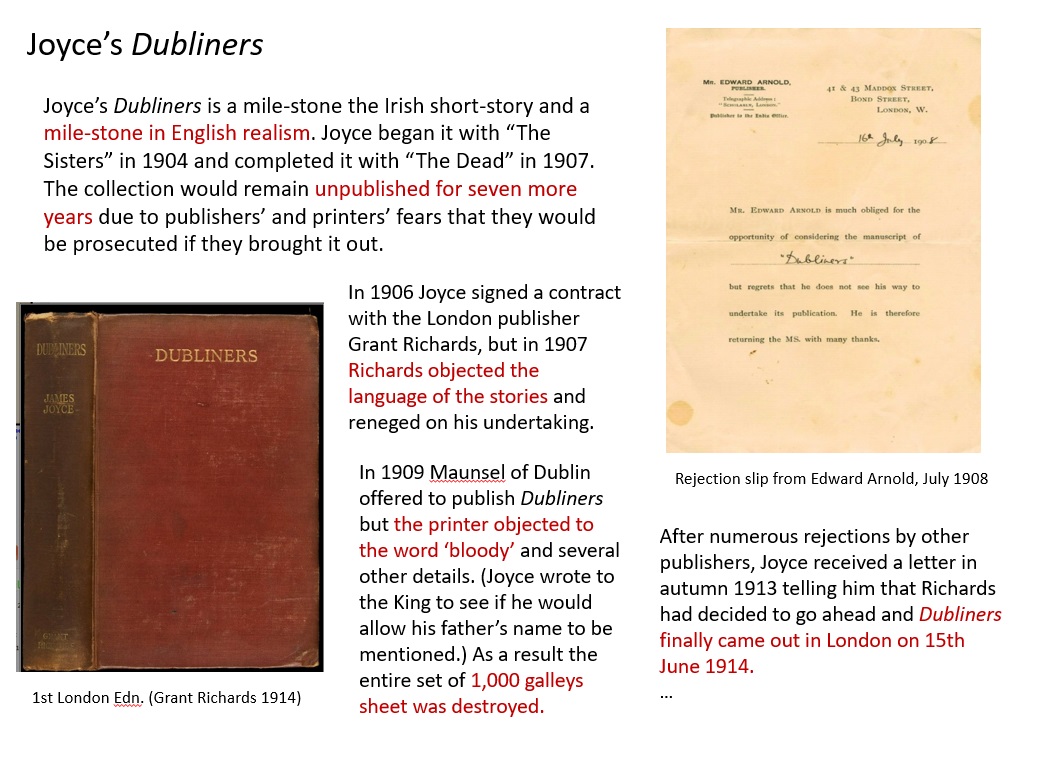 Joyce's Dubliners
Joyce's Dubliners is a mile-stone the Irish short-story and a
mile-stone in English realism. Joyce began it with “The
Sisters” in 1904 and completed it with “The Dead” in 1907.
The collection would remain unpublished for seven more
years due to publishers' and printers' fears that they would
be prosecuted if they brought it out.
DUBLINERS
JAMES
JOYCE
DUBLINERS
1st London Edn. (Grant Richards 1914)
In 1906 Joyce signed a contract
with the London publisher
Grant Richards, but in 1907
Richards objected the
language of the stories and
reneged on his undertaking.
In 1909 Maunsel of Dublin
offered to publish Dubliners
but the printer objected to
the word ‘bloody’ and several
other details. (Joyce wrote to
the King to see if he would
allow his father's name to be
mentioned.) As a result the
entire set of 1,000 galleys
sheet was destroyed.
Mr. EDWARD ARNOLD,
PUBLISHER.
Telegraphic Address:
"SCHOLARLY, LONDON."
Publisher to the India Office.
41 & 43 MADDOX STREET,
BOND STREET,
LONDON, W.
16th July 1908
MR. EDWARD ARNOLD is much obliged for the
opportunity of considering the manuscript of
"Dubliners"
but regrets that he does not see his way to
undertake its publication. He is therefore
returning the MS. with many thanks.
Rejection slip from Edward Arnold, July 1908
After numerous rejections by other
publishers, Joyce received a letter in
autumn 1913 telling him that Richards
had decided to go ahead and Dubliners
finally came out in London on 15th
June 1914.
...